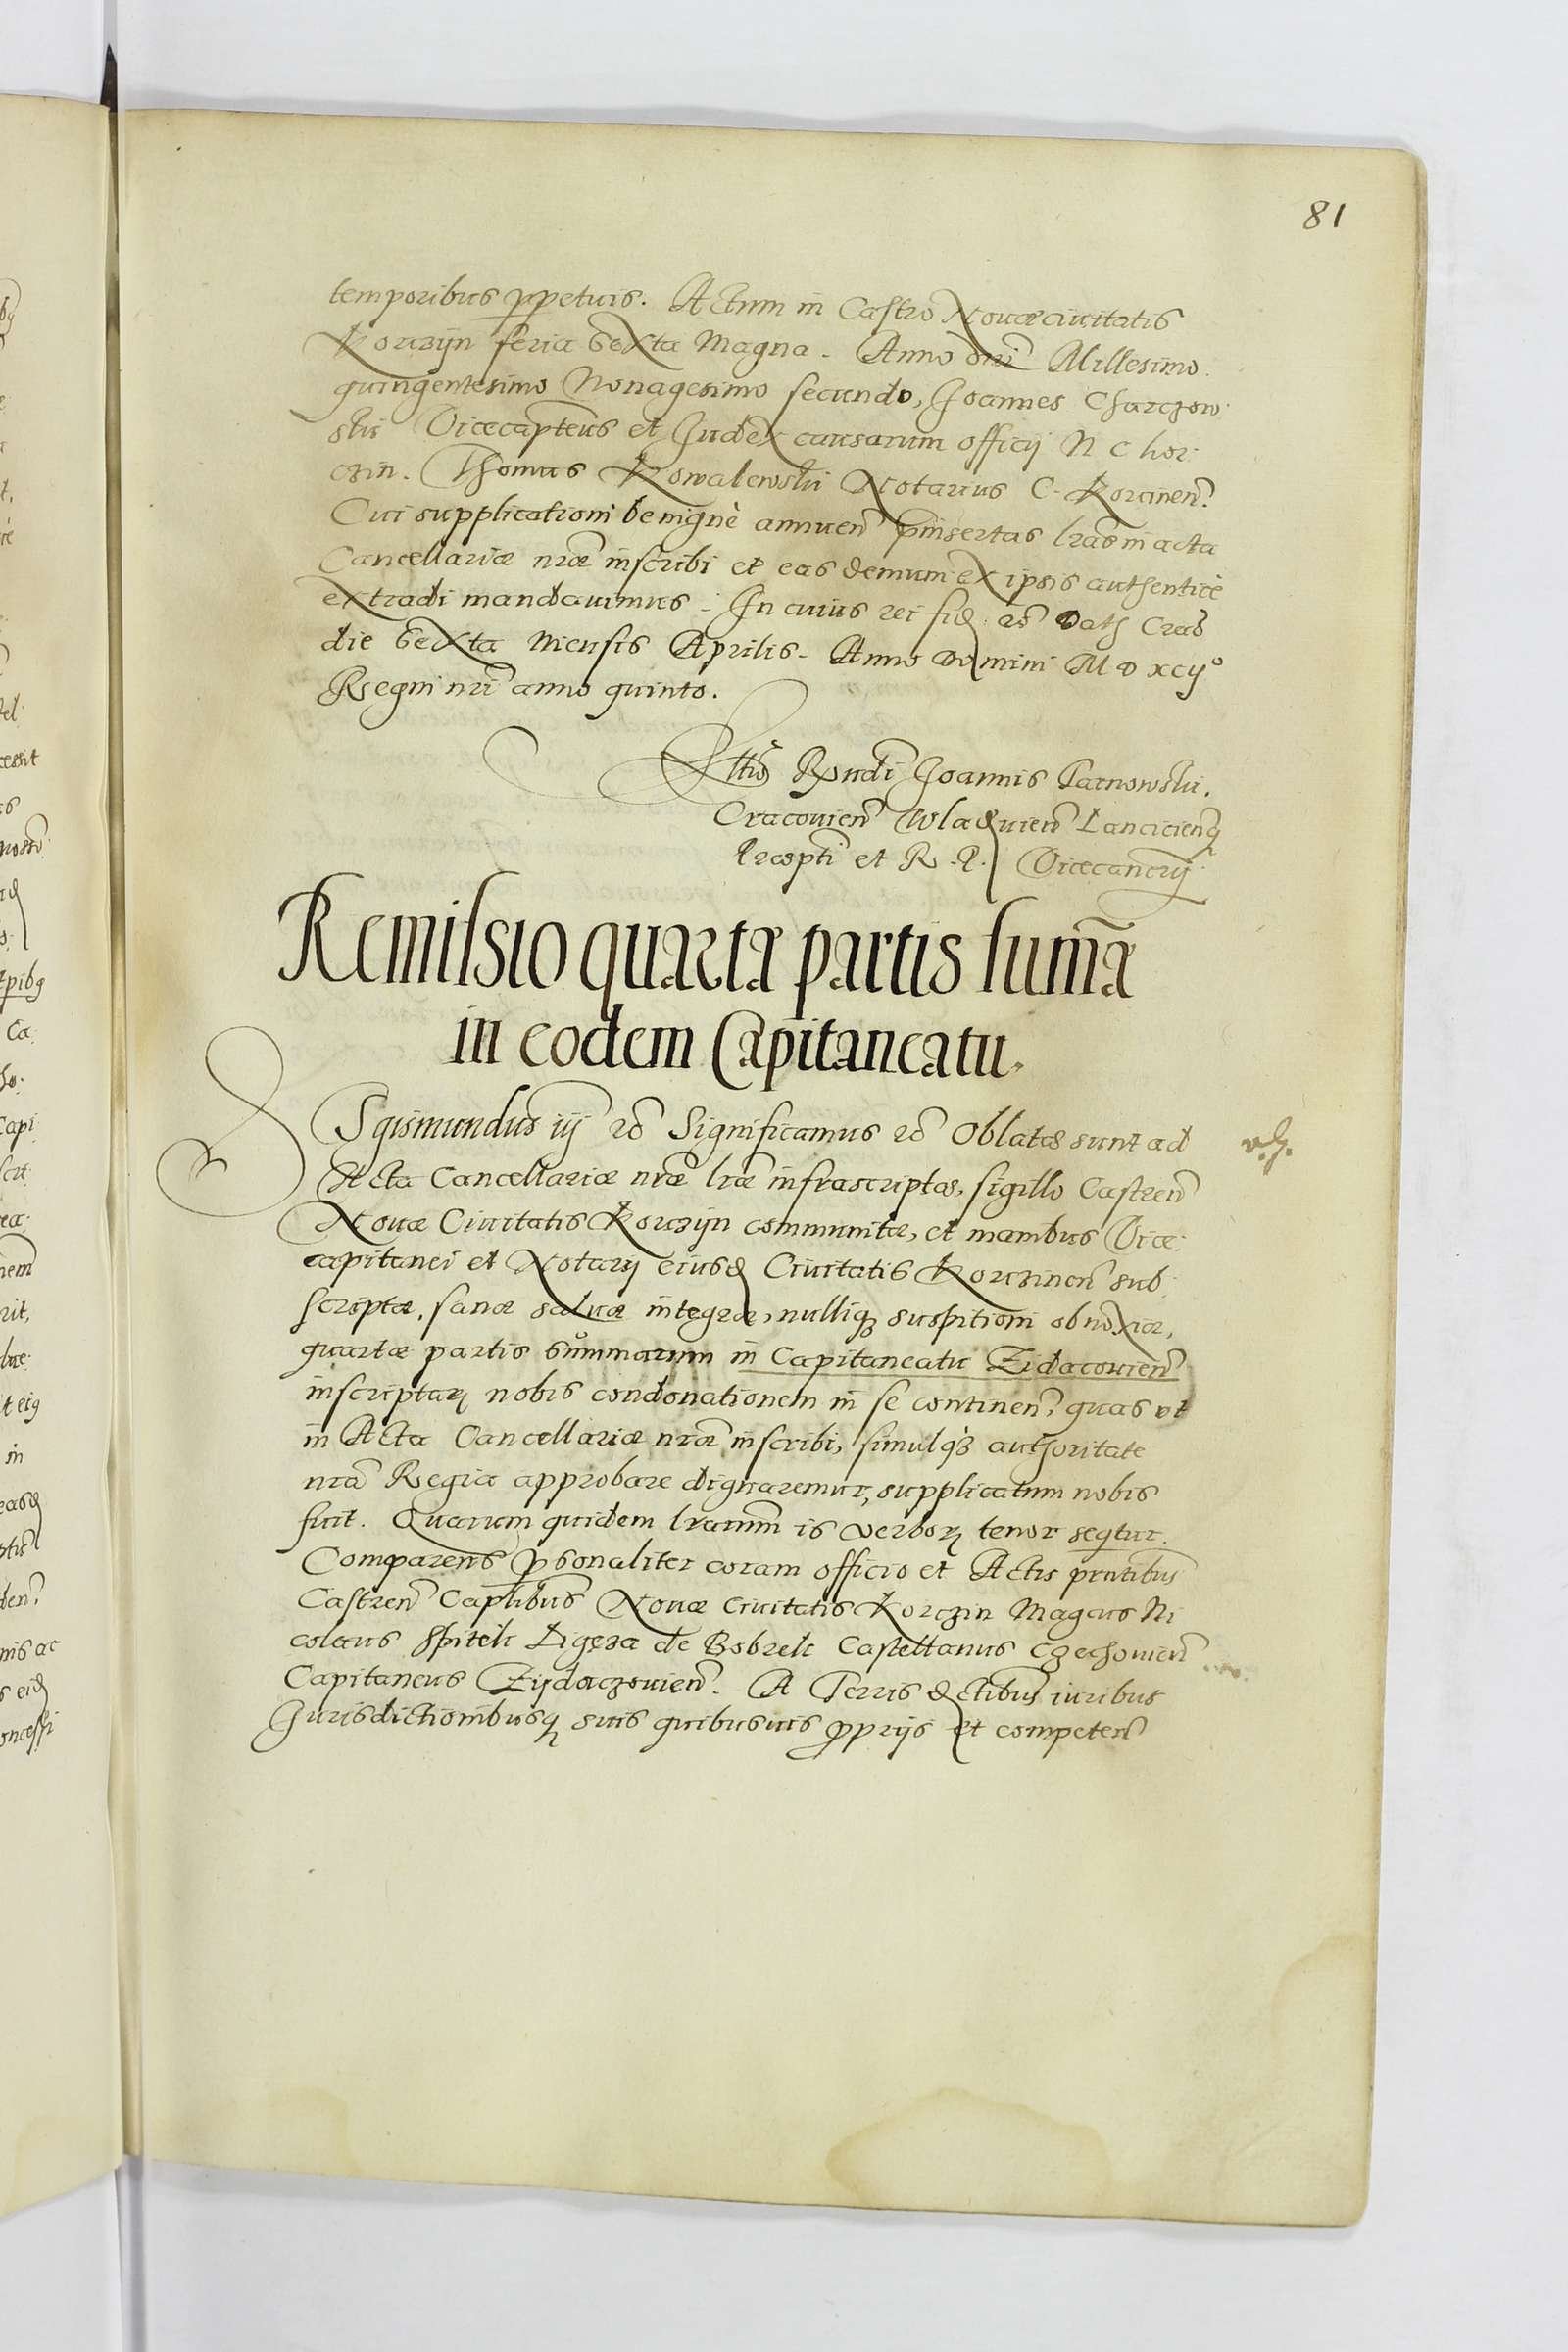 81
temporibus ppetuis. Actum in Castro Novæ civitatis
Korczijn feria Sexta Magna. Anno dni Millesimo.
quingentesimo Nonagesimo secundo, Joannes Charczow
ski Vicecapteus et Judex causarum officij N C kor
czin. Thomas Kowalewski Notarius C. Korcinen.
Cui supplicationi benignè annuen pinsertas lras in acta
Cancellariæ nræ inscribi et eas demum ex ipsis authenticè
extradi mandavimus. In cuius rei fid. Dat Crac
die Sexta Mensis Aprilis. Anno Domini M D xcij°
Regni nri anno quinto.
Rndi Joannis Tarnowski.
Cracovien Wladvien Lancicien
præpti et R. P. Vicecancrij
Remissio quartæ partis sumæ
in eodem Capitaneatu.
Sgismundus iij Significamus Oblatæ sunt ad
Acta Cancellariæ nræ lræ infrascriptæ, sigillo Castren
Novæ Civitatis Korczijn communitæ, et manibus Vice
capitanei et Notarij eiusd Civitatis Korczinen sub
scriptæ, sanæ salvæ integræ, nulliq suspitioni obnoxiæ,
quartæ partis summarum in Capitaneatu Zidacovien
inscriptar nobis condonationem in se continen, quas ut
in Acta Cancellariæ nræ inscribi, simulq authoritate
nra Regia approbare dignaremur, supplicatum nobis
fuit. Quarum quidem lrarum is verbor tenor seqtur.
Comparens psonaliter coram officio et Actis prntibus
Castren Captlibus Novæ Civitatis Korczin Magcus Ni
colaus Spitek Ligęza de Bobrek Castellanus Czechovien
Capitaneus Zijdaczovien. A Terris dctibus iuribus
Jurisdictionibusq suis quibusuis pprijs et competen